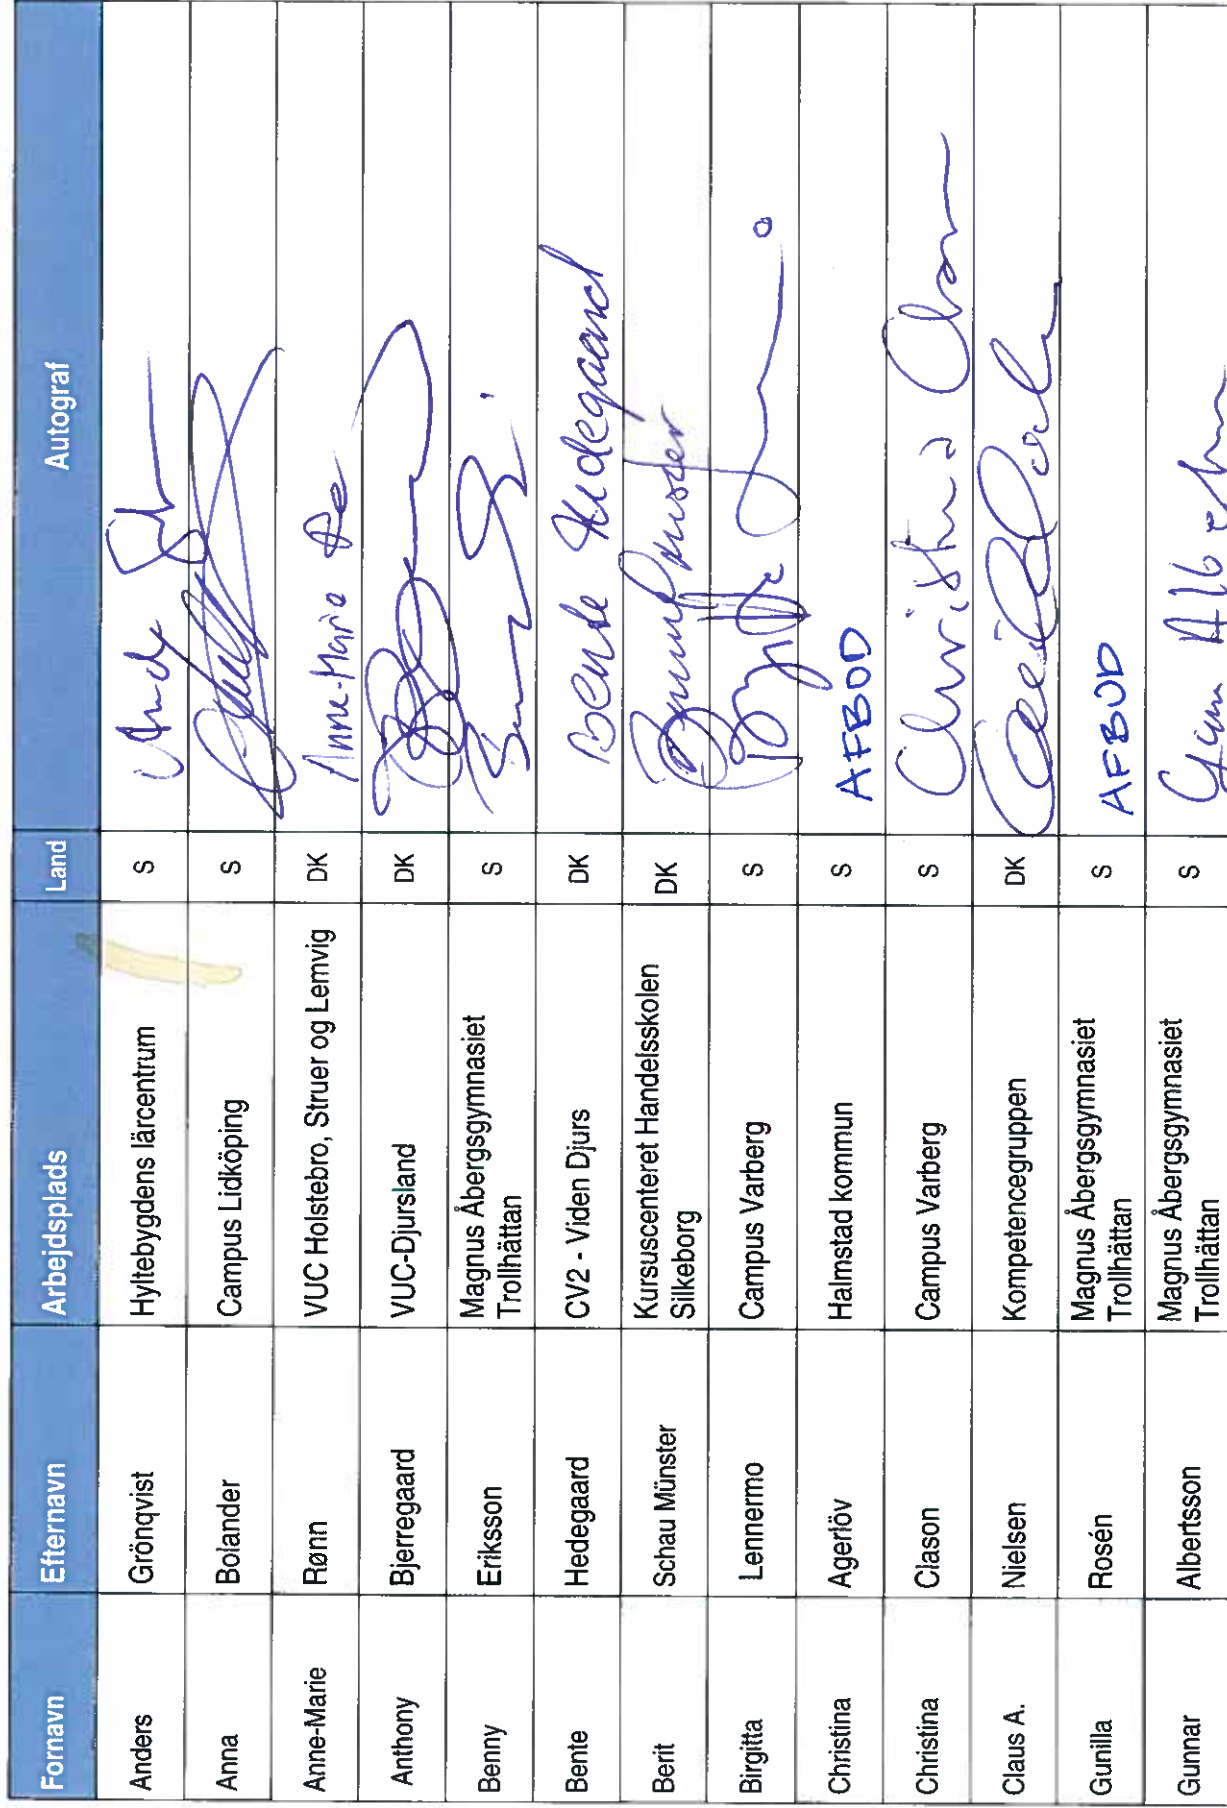 Fornavn Efternavn Arbejdsplads Land Autograf
Anders Grönqvist Hyltebygdens lärcentrum S
Anna Bolander Campus Lidköping S
Anne-Marie Rønn VUC Holstebro, Struer og Lemvig DK Anne-Marie
Anthony Bjerregaard VUC-Djursland DK
Benny Eriksson Magnus Åbergsgymnasiet S
Trollhättan
Bente Hedegaard CV2 - Viden Djurs DK Bente Hedegaard
Berit Schau Münster Kursuscenteret Handelsskolen DK
Silkeborg
Birgitta Lennermo Campus Varberg S
Christina Agerlöv Halmstad kommun S AFBUD
Christina Clason Campus Varberg S Christina Clason
Claus A. Nielsen Kompetencegruppen DK
Gunilla Rosén Magnus Åbergsgymnasiet S AFBUD
Trollhättan
Gunnar Albertsson Magnus Åbergsgymnasiet S
Trollhättan